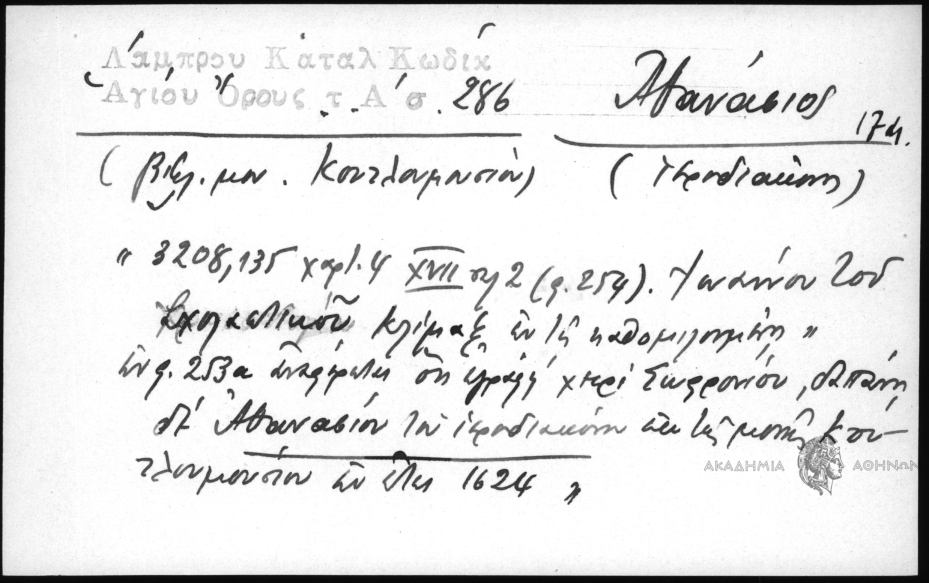 Λάμπρου Κατάλ Κωδικ
Ἁγίου Ὄρους τ. Α΄ σ. 286
Ἀθανάσιος
17 αι.
(Βιβλ. μον. Κουτλουμουσίου)
(ἱεροδιάκονος)
" 3208,135 χαρτ. 4 XVII σ. 2 (φ. 254). Ἰωάννου τοῦ
Σχολαστικοῦ Κλίμαξ ἐν τῇ καθομιλουμένῃ "
ἐν φ. 253α ἀναφέρεται ὅτι ἐγράφη χειρὶ Σωφρονίου, δαπάνῃ
δὲ Ἀθανασίου τοῦ ἱεροδιακόνου ἐκ τῆς μονῆς Κου-
τλουμουσίου ἐν ἔτει 1624 "
ΑΚΑΔΗΜΙΑ ΑΘΗΝΩΝ